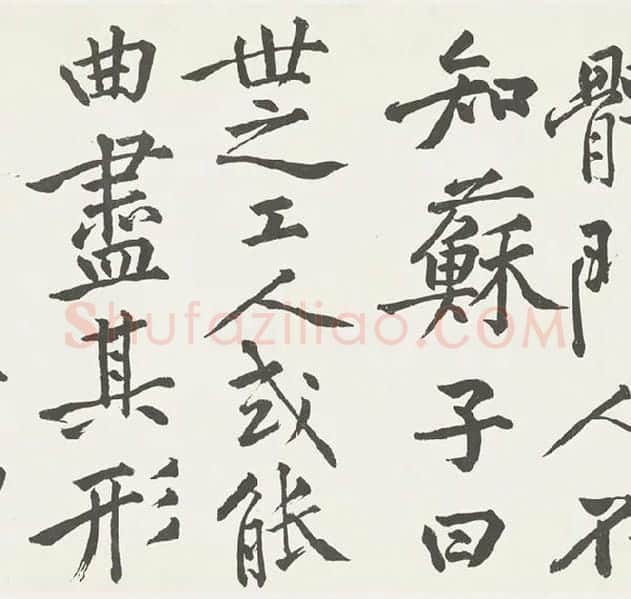 人不
知蘇子曰
世之工人或能
曲盡其形
Shufaziliao.COM